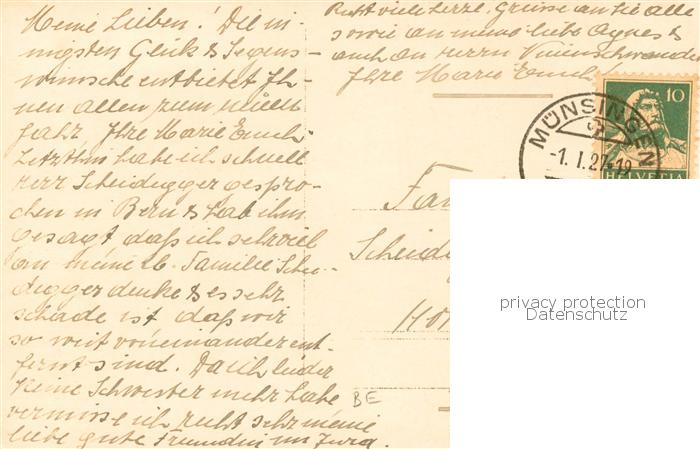 Meine Lieben! Die in-
nigsten Glück & Segens-
wünsche entbietet Ih-
nen allen zum neuen
Jahr Ihre Marie Emch.
Letzthin habe ich schnell
Herr Scheidegger gespro-
chen in Bern & hab ihm
gesagt daß ich sehr viel
an meine lb. Familie Schei-
degger denke & es sehr
schade ist daß wir
so weit voneinander ent-
fernt sind. Da ich leider
keine Schwester mehr habe
vermisse ich recht sehr meine
liebe gute Freundin im Jura.
Recht viele herzl. Grüsse an Sie alle
sowie an meine liebe Agnes &
auch an Herrn
Ihre Marie Emch
10
HELVETIA
MÜNSINGEN
-1. I. 27-19
Fam
Scheide
BE
privacy protection
Datenschutz